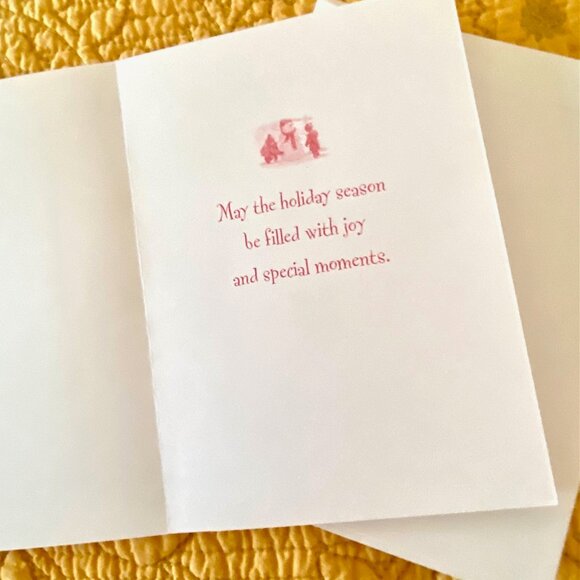 May the holiday season
be filled with joy
and special moments.